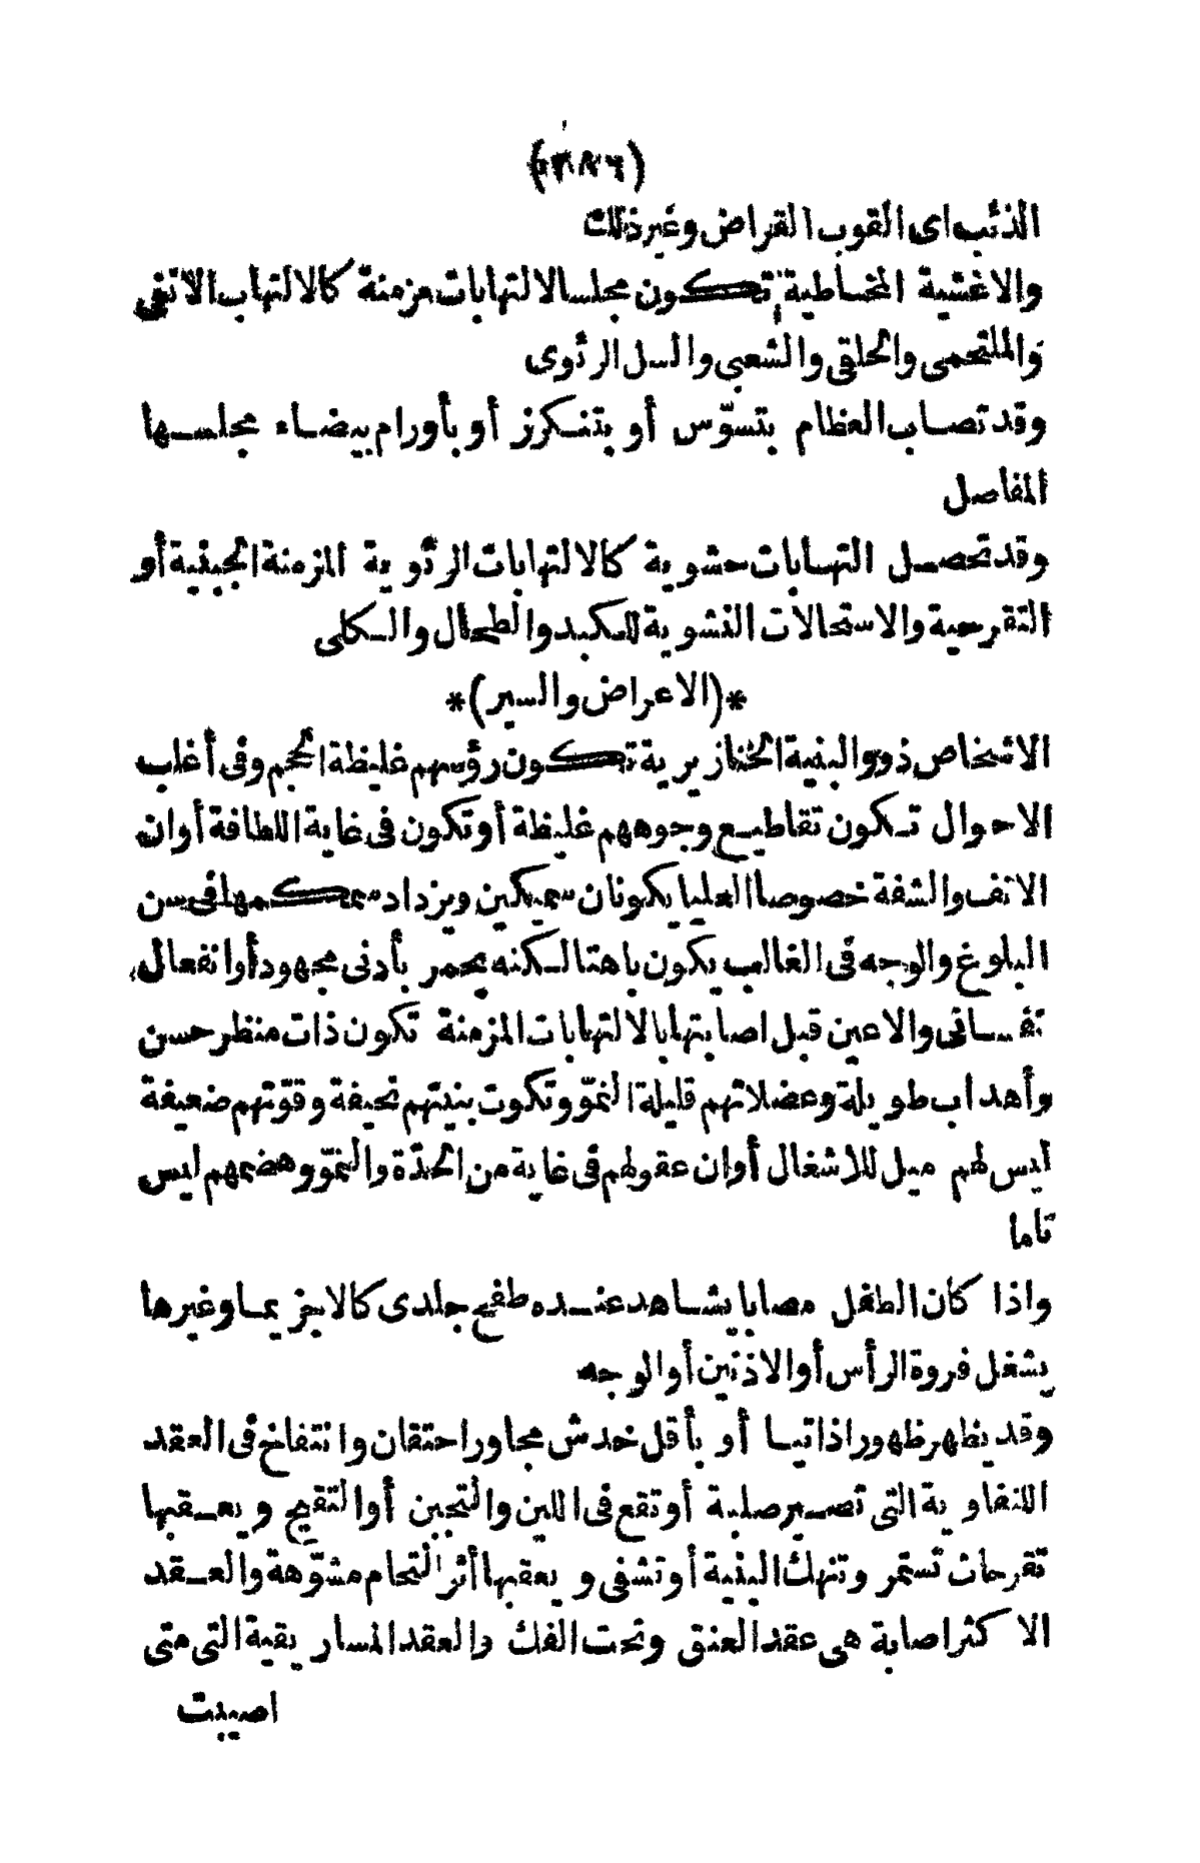 الذئب اى القوب القراض وغير ذلك
والاغشية المخاطية تكون مجلسا لالتهابات مزمنة كالالتهاب الانفى
والملتحمى والحلقى والشعبى والسل الرئوى
وقد تصاب العظام بتسوّس أو بتنكرز أو بأورام بيضاء مجلسها
المفاصل
وقد تحصل التهابات حشوية كالالتهابات الرئوية المزمنة الجبنية أو
التقرحية والاستحالات النشوية للكبد والطحال والكلى
*(الاعراض والسير)*
الاشخاص ذوو البنية الخنازيرية تكون رؤسهم غليظة الحجم وفى أغلب
الاحوال تكون تقاطيع وجوههم غليظة أو تكون فى غاية اللطافة أوان
الانف والشفة خصوصا العليا يكونان سميكين ويزداد سمكهما فى سن
البلوغ والوجه فى الغالب يكون باهتا لكنه يحمر بأدنى مجهود أو انفعال
نفسانى والاعين قبل اصابتها بالالتهابات المزمنة تكون ذات منظر حسن
وأهداب طويلة وعضلاتهم قليلة النموّ وتكون بنيتهم نحيفة وقوّتهم ضعيفة
ليس لهم ميل للاشغال أوان عقولهم فى غاية من الحدّة والنموّ وهضمهم ليس
تاما
واذا كان الطفل مصابا يشاهد عنده طفح جلدى كالايجزيما وغيرها
يشغل فروة الرأس أو الاذنين أو الوجه
وقد يظهر ظهورا ذاتيا أو بأقل خدش مجاور احتقان وانتفاخ فى العقد
اللنفاوية التى تصير صلبة أو تقع فى اللين والتجبن أو التقيح ويعقبها
تقرحات تستمر وتنهك البنية أو تشفى ويعقبها أثر التحام مشوّهة والعقد
الاكثر اصابة هى عقد العنق وتحت الفك والعقد المساريقية التى متى
اصيبت